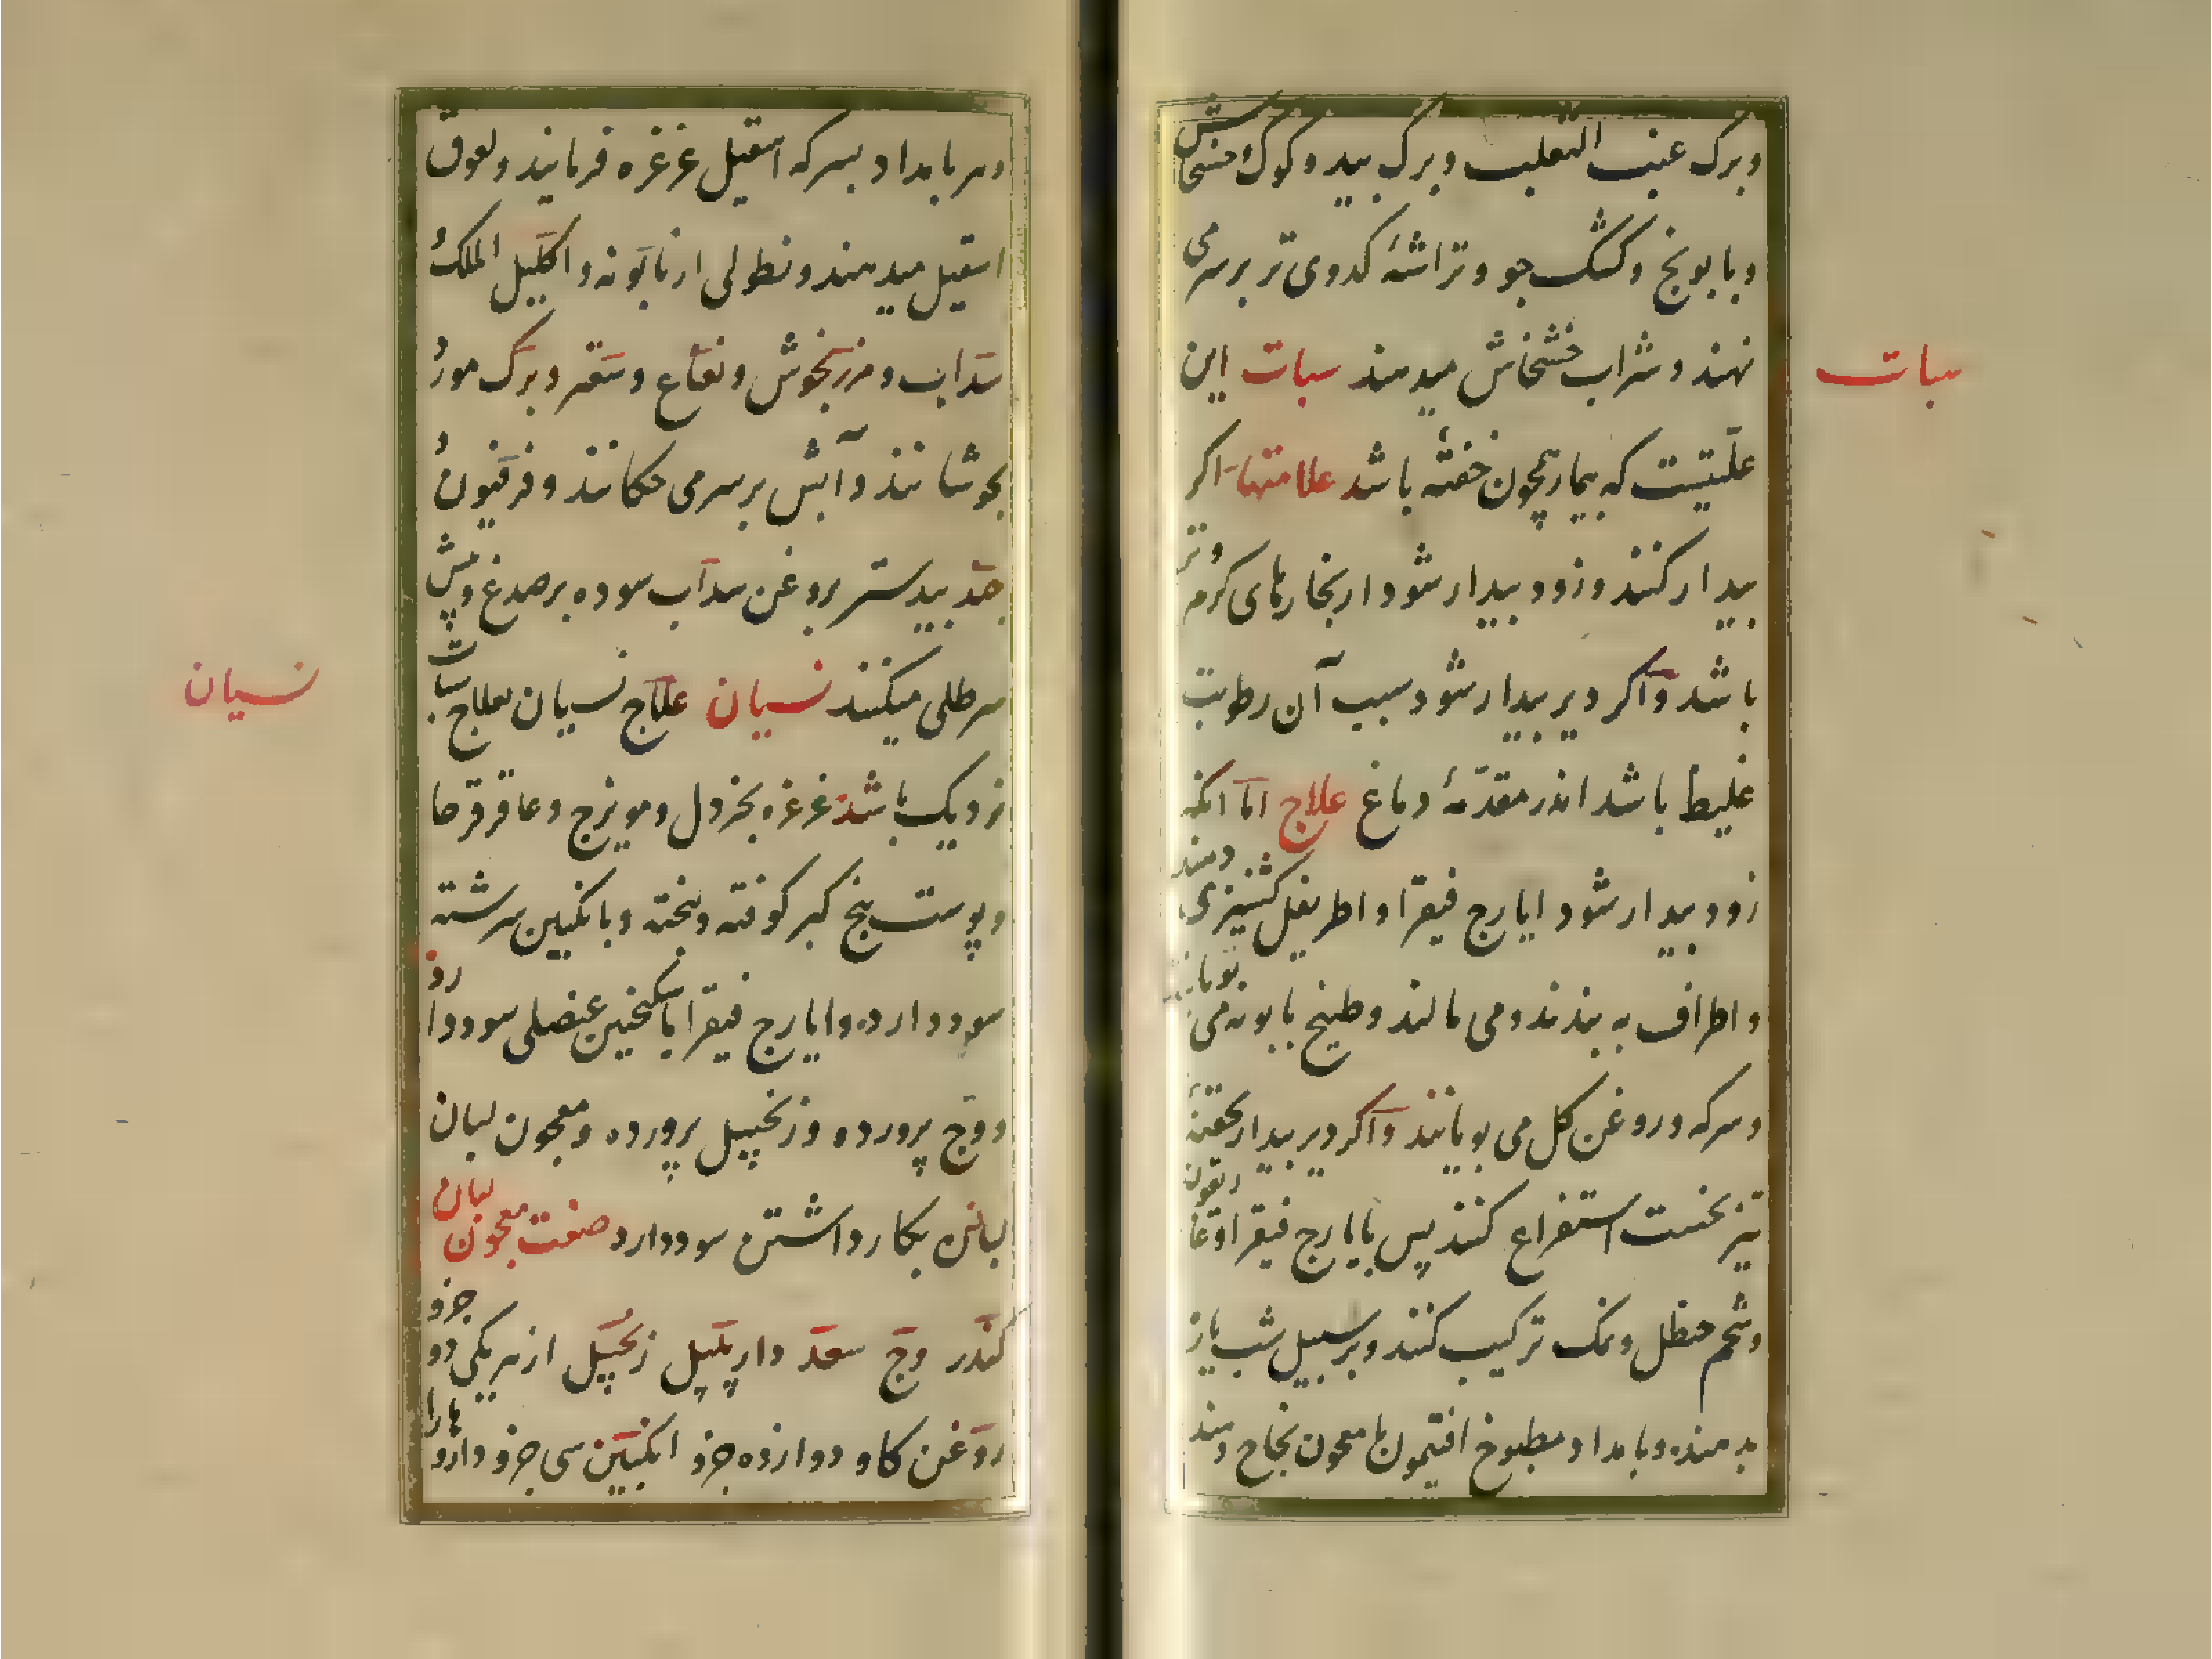 وبرک عنب الثعلب وبرک بید وکوک وخشخاش
وبابونج وکشک جو وتراشهٔ کدوی تر برسر می
نهند وشراب خشخاش میدهند سبات این
سبات
علّتیست که بیمار همچون خفته باشد علامتها اکر
بیدار کنند وزود بیدار شود از بخارهای کرم وتر
باشد واکر دیر بیدار شود سبب آن رطوبت
غلیظ باشد اندر مقدّمهٔ دماغ علاج امّا انکه
زود بیدار شود ایارج فیقرا واطریفل کشنیزی دهند
واطراف به بندند ومی مالند وطبیخ بابونه می بویانند
وسرکه وروغن کل می بویانند واکر دیر بیدار بحقنهٔ
تیز نخست استفراغ کنند پس بایارج فیقرا وغاریقون
وشحم حنظل ونمک ترکیب کنند وبر سبیل شب یاز
بدهند وبامداد مطبوخ افتیمون با معجون نجاح دهند
وهر بامداد بسرکه اسقیل غرغره فرمایند ولعوق
اسقیل میدهند ونطولی از بابونه واکلیل الملک و
سداب ومرزنجوش ونعناع وسعتر وبرک مورد
بجوشانند وآبش برسر می چکانند وفرفیون و
جندبیدستر بروغن سداب سوده بر صدغ وپیش
سر طلی میکنند نسیان علاج نسیان بعلاج سبات
نسیان
نزدیک باشد غرغره بخردل ومویزج وعاقرقرحا
وپوست بیخ کبر کوفته وبیخته وبانکبین سرشته
سود دارد وایارج فیقرا با سکنجبین عنصلی سود دارد
ووج پرورده وزنجبیل پرورده ومعجون لبان
لبان بکار داشتن سود دارد صنعت معجون لبان
کندر وج سعد دارپلپل زنجبیل از هر یکی دو جزو
روغن کاو دوازده جزو انکبین سی جزو داروها را